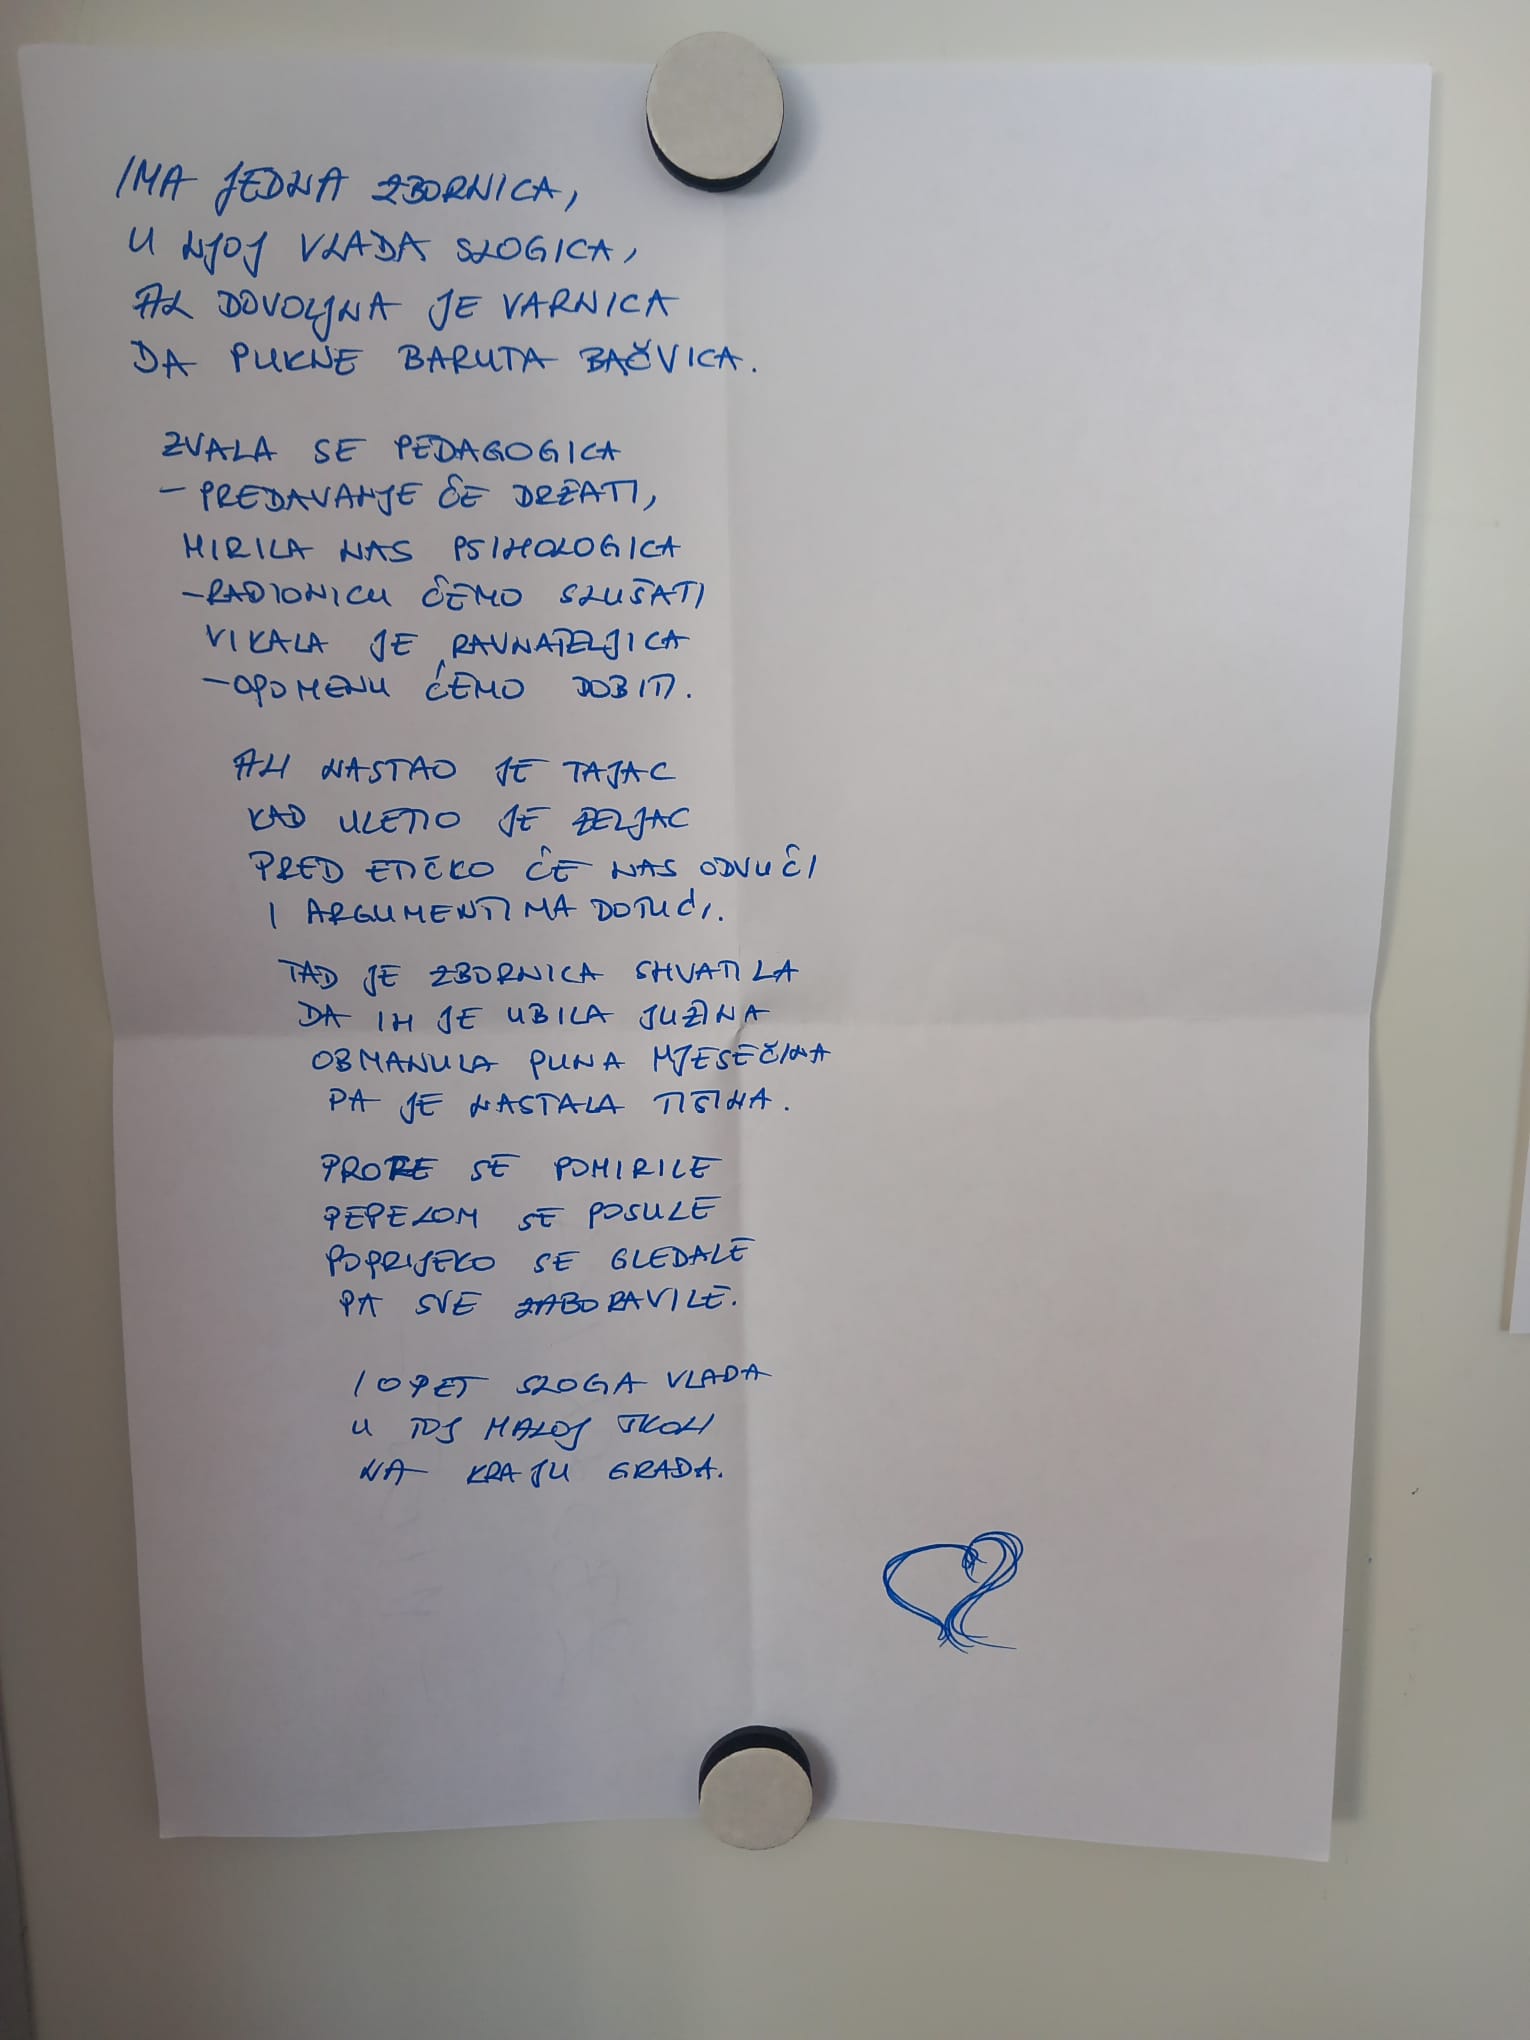 IMA JEDNA ZBORNICA,
U NJOJ VLADA SLOGICA,
AL DOVOLJNA JE VARNICA
DA PUKNE BARUTA BAČVICA.
ZVALA SE PEDAGOGICA
- PREDAVANJE ĆE DRŽATI,
MIRILA NAS PSIHOLOGICA
- RADIONICU ĆEMO SLUŠATI
VIKALA JE RAVNATELJICA
- OPOMENU ĆEMO DOBITI.
ALI NASTAO JE TAJAC
KAD ULETIO JE ŽELJAC
PRED ETIČKO ĆE NAS ODVUĆI
I ARGUMENTIMA DOTUĆI.
TAD JE ZBORNICA SHVATILA
DA IH JE UBILA JUŽINA
OBMANULA PUNA MJESEČINA
PA JE NASTALA TIŠINA.
PROFE SE POMIRILE
PEPELOM SE POSULE
POPRIJEKO SE GLEDALE
PA SVE ZABORAVILE.
I OPET SLOGA VLADA
U TOJ MALOJ ŠKOLI
NA KRAJU GRADA.